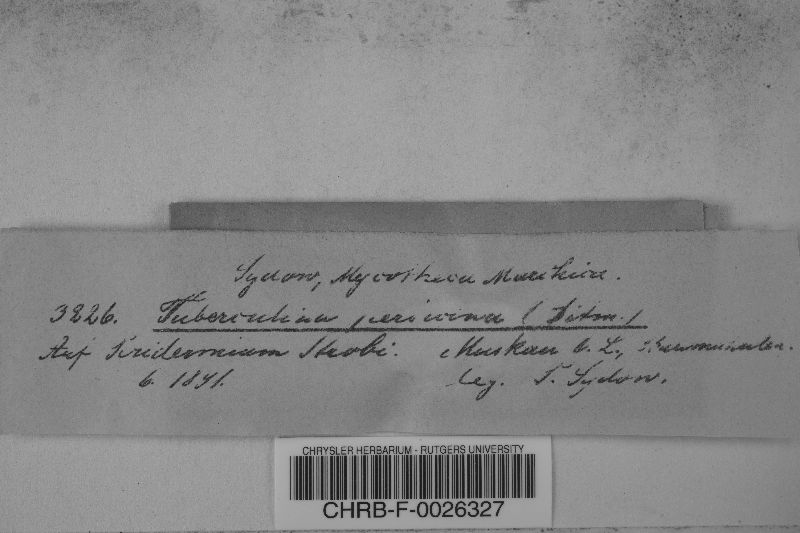 Sydow, Mycotheca Marchica.
3226. Tuberculina persicina (Ditm.)
Auf Peridermium Strobi. Muskau O. L.,
6. 1891. leg. P. Sydow.
CHRYSLER HERBARIUM - RUTGERS UNIVERSITY
CHRB-F-0026327